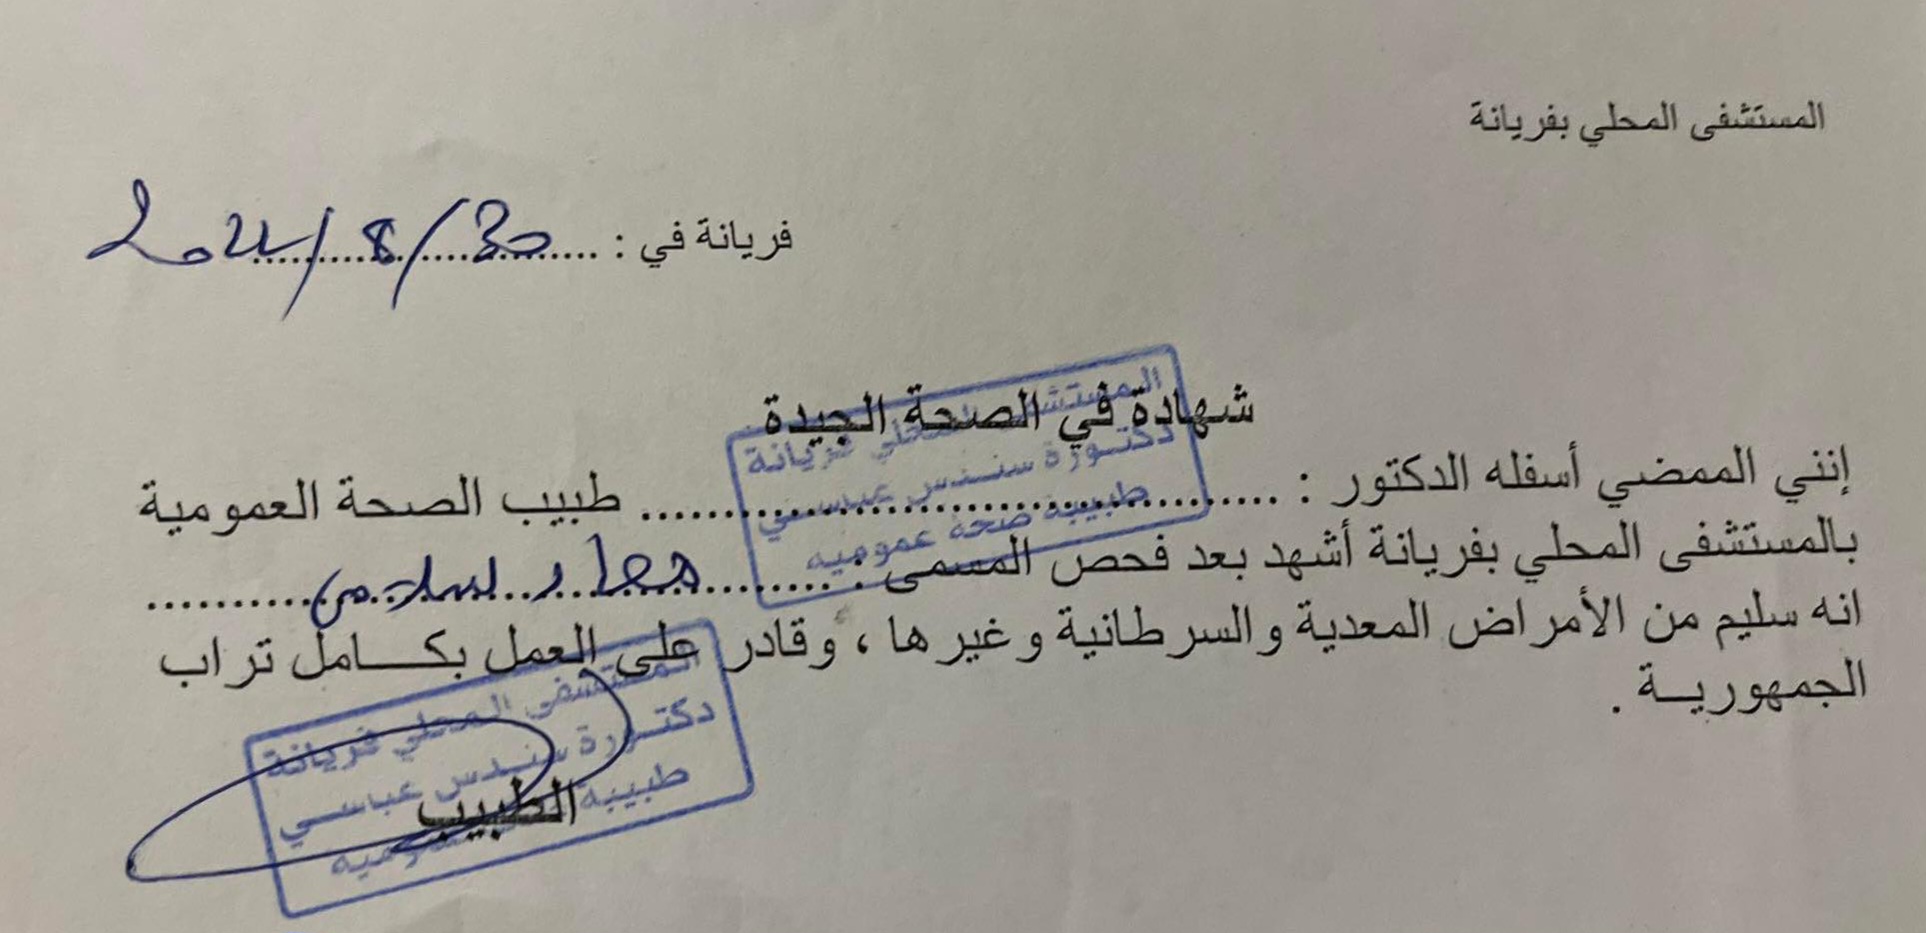 المستشفى المحلي بفريانة
فريانة في : ............ 30/8/
شهادة في الصحة الجيدة
المستشفى المحلي فريانة
دكتورة سندس عباسي
طبيبة صحة عمومية
إنني الممضي أسفله الدكتور : ............ طبيب الصحة العمومية
بالمستشفى المحلي بفريانة أشهد بعد فحص المسمى : ............
انه سليم من الأمراض المعدية والسرطانية وغيرها ، وقادر على العمل بكامل تراب
الجمهورية .
المستشفى المحلي فريانة
دكتورة سندس عباسي
طبيبة صحة عمومية
الطبيب